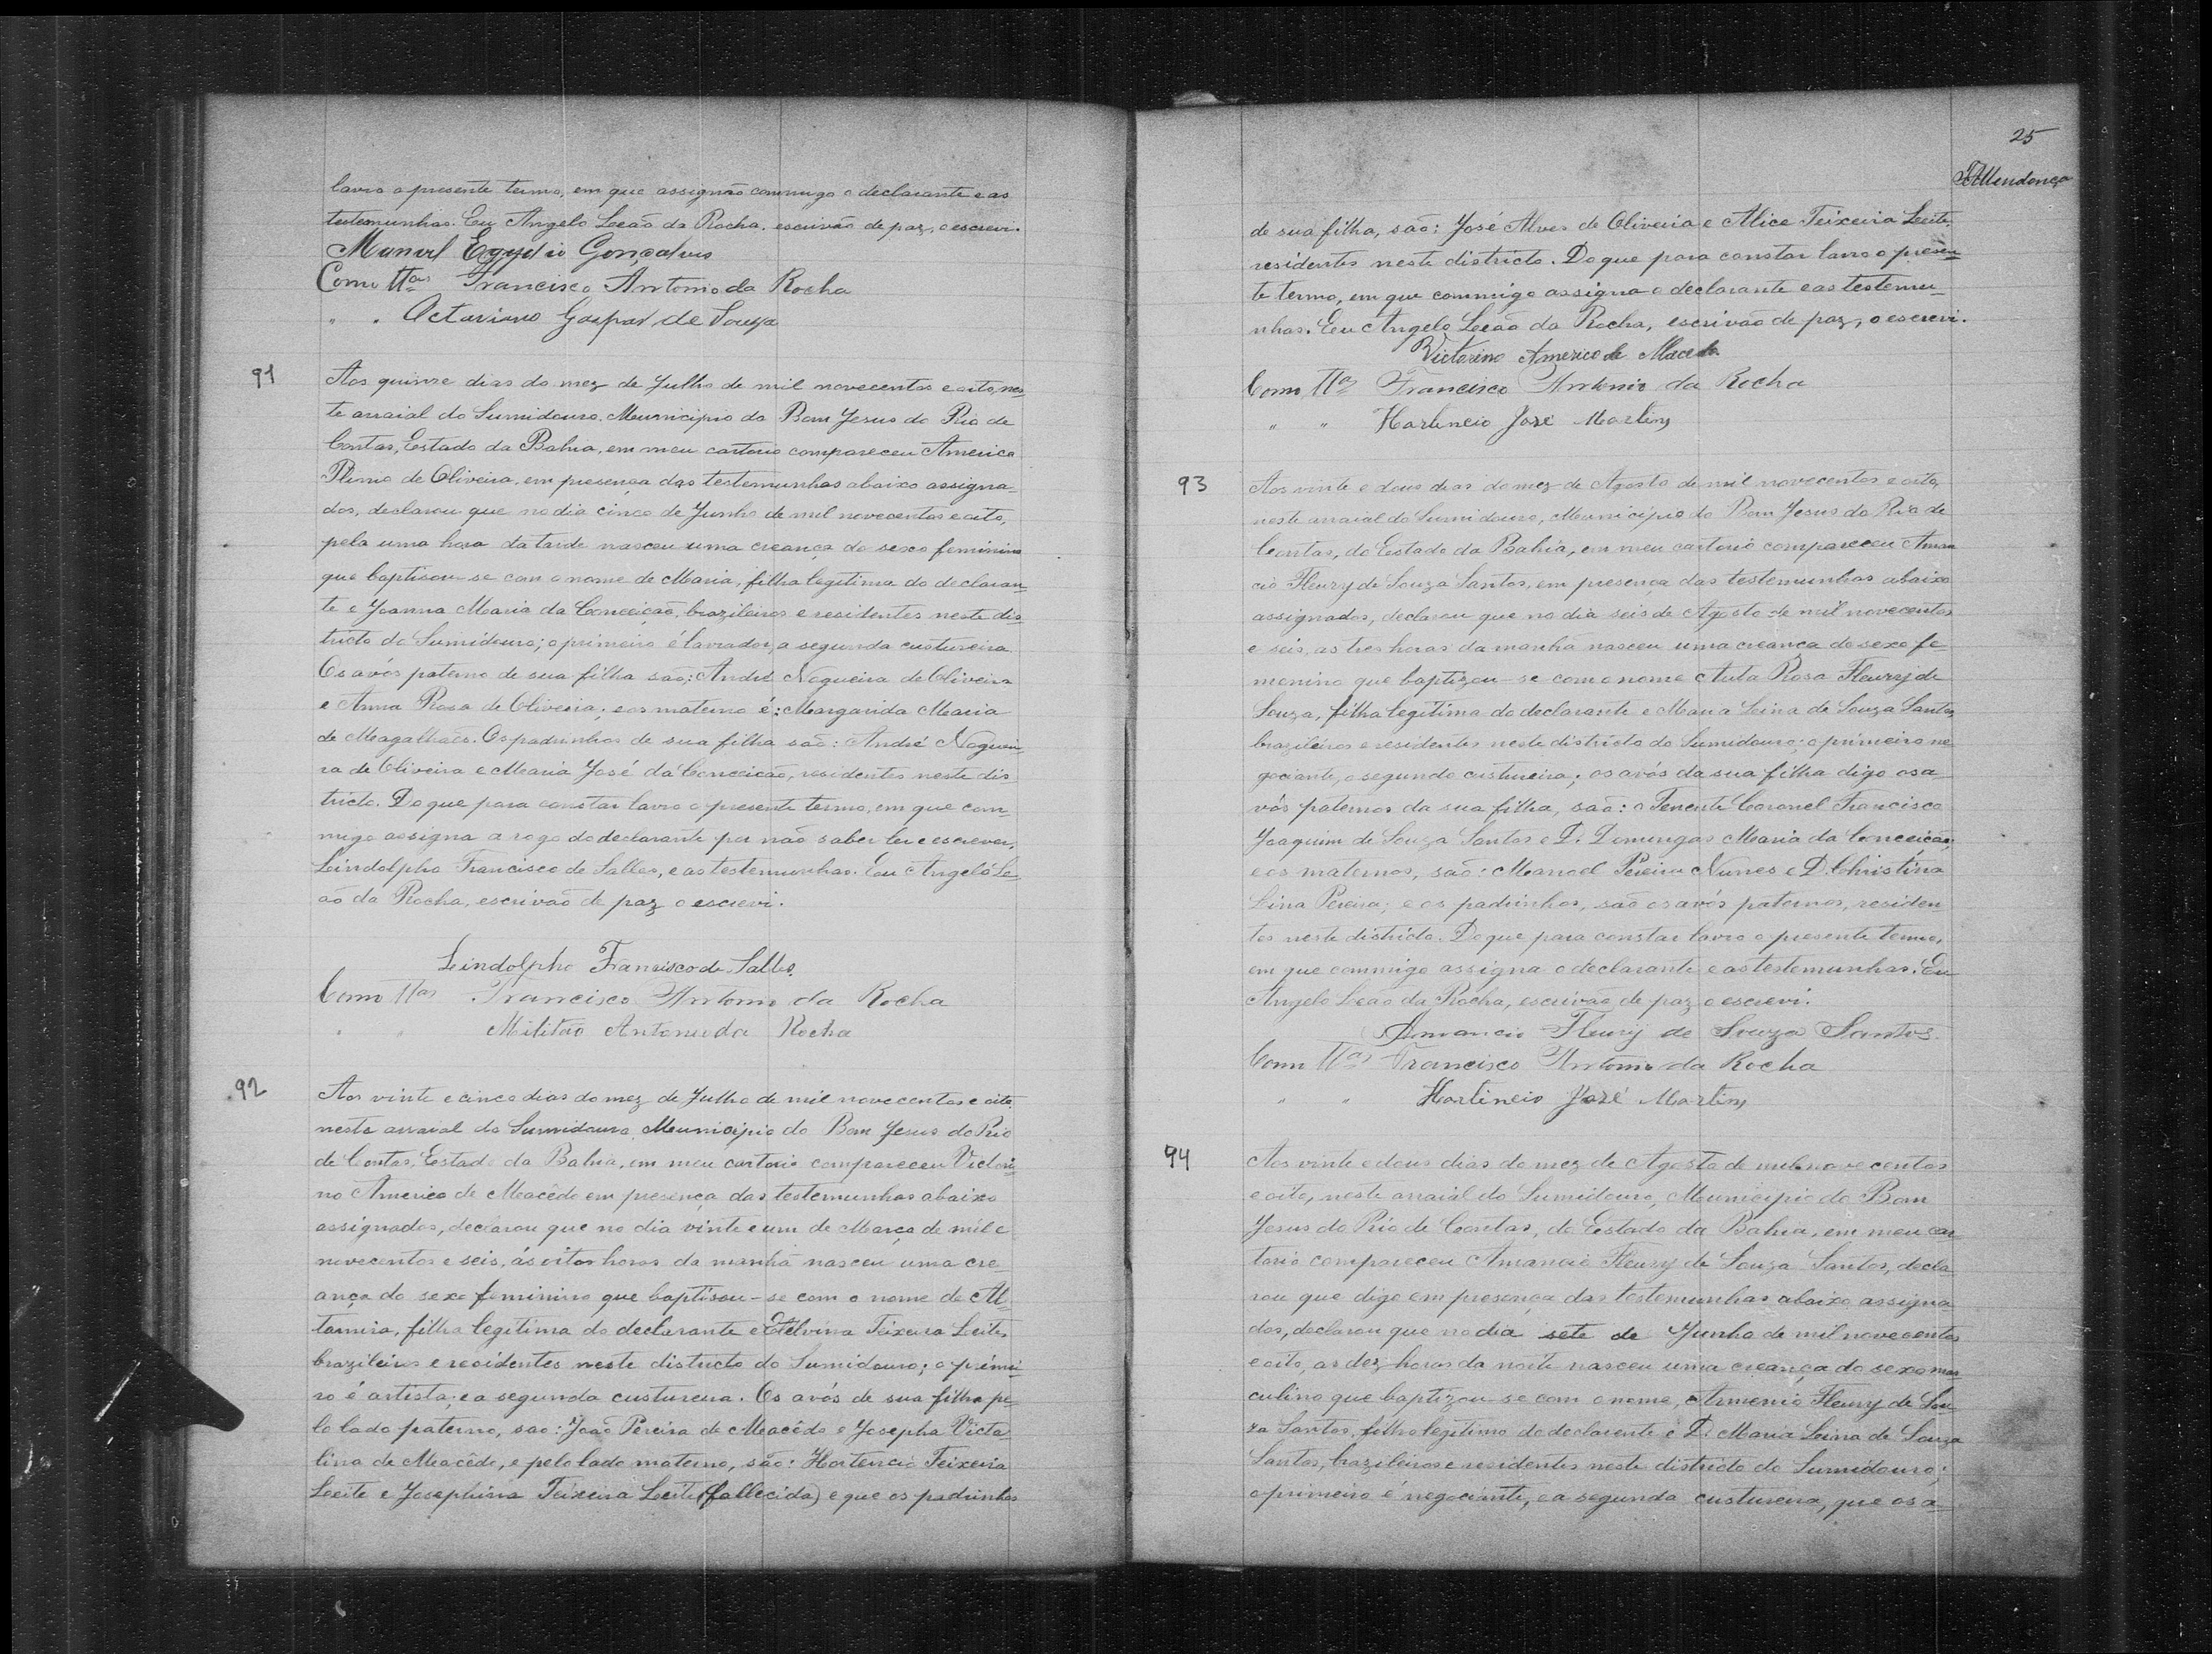 lavro o presente termo, em que assignão commigo o declarante e as
testemunhas. Eu Angelo Leão da Rocha, escrivão de paz, o escrevi.
Manoel Egydio Gonçalves
Como ttas Francisco Antonio da Rocha
" " Octaviano Gaspar de Souza
91
Aos quinze dias do mez de Julho de mil novecentos e oito, nes-
te arraial do Sumidouro, Municipio do Bom Jesus do Rio de
Contas, Estado da Bahia, em meu cartorio compareceu Americo
Plinio de Oliveira, em presença das testemunhas abaixo assigna-
dos, declarou que no dia cinco de Junho de mil novecentos e oito,
pela uma hora da tarde nasceu uma creança do sexo feminino
que baptisou-se com o nome de Maria, filha legitima do declaran-
te e Joanna Maria da Conceição, brazileiros e residentes neste dis-
tricto do Sumidouro; o primeiro é lavrador, a segunda custureira.
Os avós paterno de sua filha são: André Nogueira de Oliveira
e Anna Rosa de Oliveira; e os materno é: Margarida Maria
de Magalhães. Os padrinhos de sua filha são: André Noguei-
ra de Oliveira e Maria José da Conceicão, residentes neste dis-
tricto. Do que para constar lavro o presente termo, em que com-
migo assigna a rogo do declarante por não saber ler e escrever,
Lindolpho Francisco de Salles, e as testemunhas. Eu Angelo Le-
ão da Rocha, escrivão de paz o escrevi.
Lindolpho Francisco de Salles.
Como ttas Francisco Antonio da Rocha
" " Militão Antonio da Rocha
92
Aos vinte e cinco dias do mez de Julho de mil novecentos e oito,
neste arraial do Sumidouro, Municipio do Bom Jesus do Rio
de Contas, Estado da Bahia, em meu cartorio compareceu Victori-
no Americo de Macêdo em presença das testemunhas abaixo
assignados, declarou que no dia vinte e um de Março de mil e
novecentos e seis, ás oitos horas da manhã nasceu uma cre-
ança do sexo feminino que baptisou-se com o nome de Al-
tamira, filha legitima do declarante e Etelvina Teixeira Leite,
brazileiros e residentes neste districto do Sumidouro; o primei-
ro é artista; e a segunda custureira. Os avós de sua filha pe-
lo lado paterno, são: João Pereira de Macêdo e Josepha Victa-
lina de Macêdo, e pelo lado materno, são: Hortencio Teixeira
Leite e Josephina Teixeira Leite (fallecida) e que os padrinhos
25
Mendonça
de sua filha, são: José Alves de Oliveira e Alice Teixeira Leite,
residentes neste districto. Do que para constar lavro o presen-
te termo, em que commigo assigna o declarante e as testemu-
nhas. Eu Angelo Leão da Rocha, escrivão de paz, o escrevi.
Victorino Americo de Macedo
Como ttas Francisco Antonio da Rocha
" " Hortincio José Martins
93
Aos vinte e dous dias do mez de Agosto de mil novecentos e oito,
neste arraial do Sumidouro, Municipio do Bom Jesus do Rio de
Contas, do Estado da Bahia, em meu cartorio compareceu Aman
cio Fleury de Souza Santos, em presença das testemunhas abaixo
assignados, declarou que no dia seis de Agosto de mil novecentos
e seis, as tres horas da manhã nasceu uma creança do sexo fe
menino que baptizou-se com o nome Auta Rosa Fleury de
Souza, filha legitima do declarante e Maria Leina de Souza Santos,
brazileiros e residentes neste districto do Sumidouro; o primeiro ne
gociante, o segundo custureira; os avós da sua filha digo os a-
vós paternos da sua filha, são: o Tenente Coronel Francisco
Joaquim de Souza Santos e D. Domingas Maria da Conceicão,
e os maternos, são: Manoel Pereira Nunes e D. Christina
Lina Pereira; e os padrinhos, são os avós paternos, residen-
tes neste districto. Do que para constar lavro o presente termo,
em que commigo assigna o declarante e as testemunhas. Eu
Angelo Leão da Rocha, escrivão de paz o escrevi.
Amancio Fleury de Souza Santos.
Como ttas Francisco Antonio da Rocha
" " Hortincio José Martins
94
Aos vinte e dous dias do mez de Agosto de mil novecentos
e oito, neste arraial do Sumidouro, Municipio do Bom
Jesus do Rio de Contas, do Estado da Bahia, em meu car
torio compareceu Amancio Fleury de Souza Santos, decla-
rou que digo em presença das testemunhas abaixo assigna
dos, declarou que no dia sete de Junho de mil novecentos
e oito, as dez horas da noite nasceu uma creança do sexo mas
culino que baptizou-se com o nome, Armenio Fleury de Sou
za Santos, filho legitimo do declarante e D. Maria Leina de Souza
Santos, brazileiros e residentes neste districto do Sumidouro;
o primeiro é negociante, e a segunda custureira, que os a-